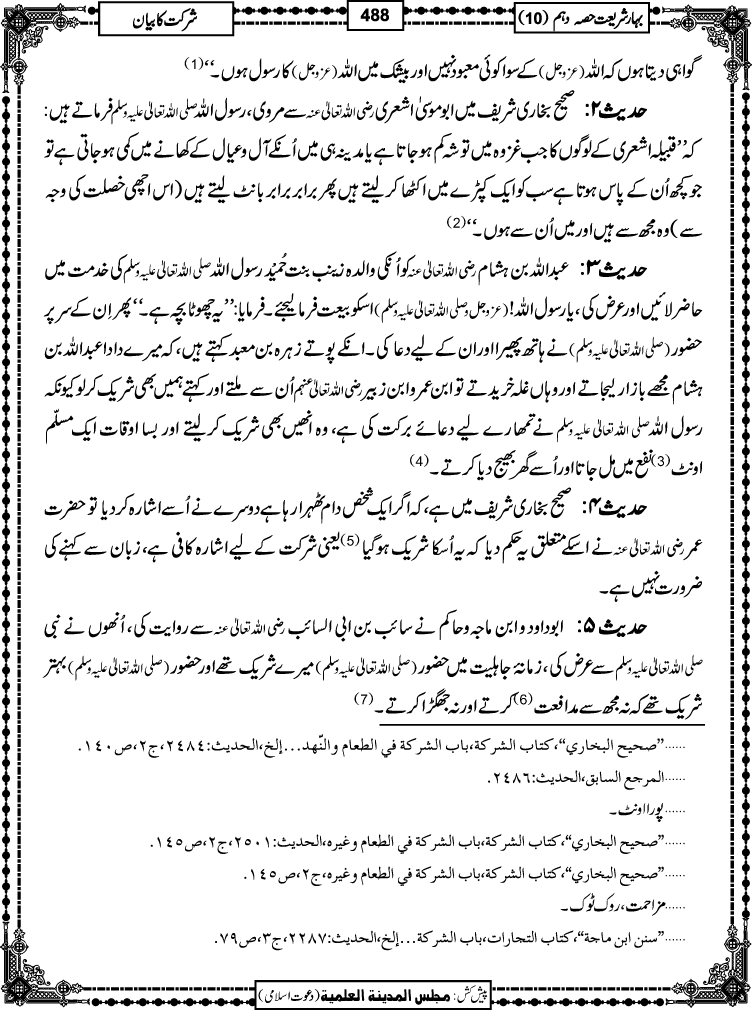 بہارشریعت حصہ دہم (10)
488
شرکت کا بیان
گواہی دیتا ہوں کہ اللہ (عزوجل) کے سوا کوئی معبود نہیں اور بیشک میں اللہ (عزوجل) کا رسول ہوں۔‘‘(1)
حدیث ۲: صحیح بخاری شریف میں ابوموسیٰ اشعری رضی اللہ تعالیٰ عنہ سے مروی، رسول اللہ صلی اللہ تعالیٰ علیہ وسلم فرماتے ہیں:
کہ ’’قبیلہ اشعری کے لوگوں کا جب غزوہ میں توشہ کم ہو جاتا ہے یا مدینہ ہی میں اُنکے آل و عیال کے کھانے میں کمی ہو جاتی ہے تو
جو کچھ اُن کے پاس ہوتا ہے سب کو ایک کپڑے میں اکٹھا کر لیتے ہیں پھر برابر برابر بانٹ لیتے ہیں (اس اچھی خصلت کی وجہ
سے) وہ مجھ سے ہیں اور میں اُن سے ہوں۔‘‘(2)
حدیث ۳: عبداللہ بن ہشام رضی اللہ تعالیٰ عنہ کو اُنکی والدہ زینب بنت حُمَیْد رسول اللہ صلی اللہ تعالیٰ علیہ وسلم کی خدمت میں
حاضر لائیں اور عرض کی، یارسول اللہ! (عزوجل و صلی اللہ تعالیٰ علیہ وسلم) اسکو بیعت فرما لیجئے۔ فرمایا: ’’یہ چھوٹا بچہ ہے۔‘‘ پھر اِن کے سر پر
حضور (صلی اللہ تعالیٰ علیہ وسلم) نے ہاتھ پھیرا اور ان کے لیے دعا کی۔ انکے پوتے زہرہ بن معبد کہتے ہیں، کہ میرے دادا عبداللہ بن
ہشام مجھے بازار لیجاتے اور وہاں غلہ خریدتے تو ابن عمر و ابن زبیر رضی اللہ تعالیٰ عنہم اُن سے ملتے اور کہتے ہمیں بھی شریک کر لو کیونکہ
رسول اللہ صلی اللہ تعالیٰ علیہ وسلم نے تمھارے لیے دعائے برکت کی ہے، وہ انھیں بھی شریک کر لیتے اور بسا اوقات ایک مسلّم
اونٹ (3) نفع میں مل جاتا اور اُسے گھر بھیج دیا کرتے۔(4)
حدیث ۴: صحیح بخاری شریف میں ہے، کہ اگر ایک شخص دام ٹھہرا رہا ہے دوسرے نے اُسے اشارہ کر دیا تو حضرت
عمر رضی اللہ تعالیٰ عنہ نے اسکے متعلق یہ حکم دیا کہ یہ اُسکا شریک ہو گیا (5) یعنی شرکت کے لیے اشارہ کافی ہے، زبان سے کہنے کی
ضرورت نہیں ہے۔
حدیث ۵: ابوداود و ابن ماجہ و حاکم نے سائب بن ابی السائب رضی اللہ تعالیٰ عنہ سے روایت کی، اُنھوں نے نبی
صلی اللہ تعالیٰ علیہ وسلم سے عرض کی، زمانۂ جاہلیت میں حضور (صلی اللہ تعالیٰ علیہ وسلم) میرے شریک تھے اور حضور (صلی اللہ تعالیٰ علیہ وسلم) بہتر
شریک تھے کہ نہ مجھ سے مدافعت (6) کرتے اور نہ جھگڑا کرتے۔(7)
......”صحیح البخاري“،کتاب الشرکة،باب الشرکة في الطعام والنّهد...إلخ،الحدیث:٢٤٨٤،ج٢،ص١٤٠.
......المرجع السابق،الحدیث:٢٤٨٦.
......پورا اونٹ۔
......”صحیح البخاري“،کتاب الشرکة،باب الشرکة في الطعام وغیره،الحدیث:٢٥٠١،ج٢،ص١٤٥.
......”صحیح البخاري“،کتاب الشرکة،باب الشرکة في الطعام وغیره،ج٢،ص١٤٥.
......مزاحمت، روک ٹوک۔
......”سنن ابن ماجة“،کتاب التجارات،باب الشرکة...إلخ،الحدیث:٢٢٨٧،ج٣،ص٧٩.
پیش کش: مجلس المدینة العلمیة (دعوت اسلامی)